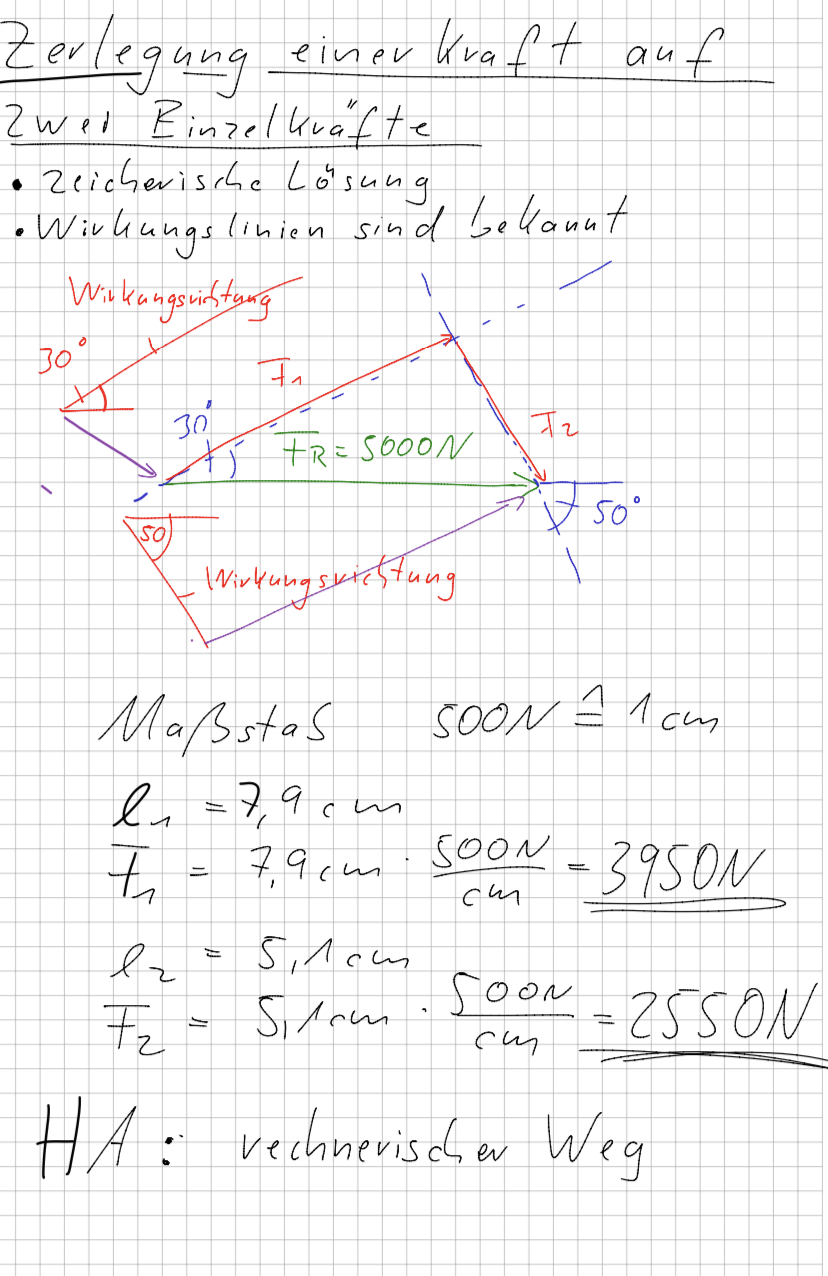 Zerlegung einer Kraft auf
Zwei Einzelkräfte
• Zeicherische Lösung
• Wirkungslinien sind bekannt
Wirkungsrichtung
30°
F₁
30°
F_R = 5000N
F₂
50°
50
Wirkungsrichtung
Maßstab 500N ≙ 1cm
l₁ = 7,9 cm
F₁ = 7,9 cm · 500N/cm = 3950N
l₂ = 5,1cm
F₂ = 5,1cm · 500N/cm = 2550N
HA: rechnerischer Weg